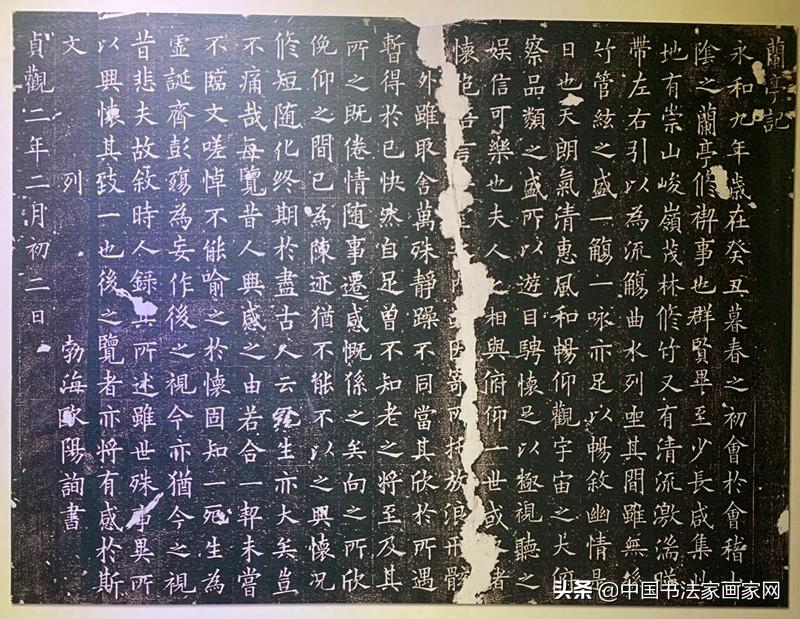 蘭亭記
永和九年歲在癸丑暮春之初會於會稽
陰之蘭亭修禊事也群賢畢至少長咸集
地有崇山峻嶺茂林修竹又有清流激湍暎
帶左右引以為流觴曲水列坐其間雖無絲
竹管絃之盛一觴一咏亦足以暢敘幽情是
日也天朗氣清惠風和暢仰觀宇宙之大俯
察品類之盛所以遊目騁懷足以極視聽之
娛信可樂也夫人之相與俯仰一世或
懷抱 因寄所托放浪形骸
外雖取舍萬殊靜躁不同當其欣於所遇
暫得於己快然自足曾不知老之將至及其
所之既倦情随事遷感慨係之矣向之所欣
俛仰之間已為陳迹猶不能不以之興懷況
修短随化終期於盡古人云死生亦大矣豈
不痛哉每覽昔人興感之由若合一契未嘗
不臨文嗟悼不能喻之於懷固知一死生為
虛誕齊彭殤為妄作後之視今亦猶今之視
昔悲夫故敘時人錄其所述雖世殊事異所
以興懷其致一也後之覽者亦將有感於斯
文 列 勃海歐陽詢書
貞觀二年二月初二日
头条 @中国书法家画家网